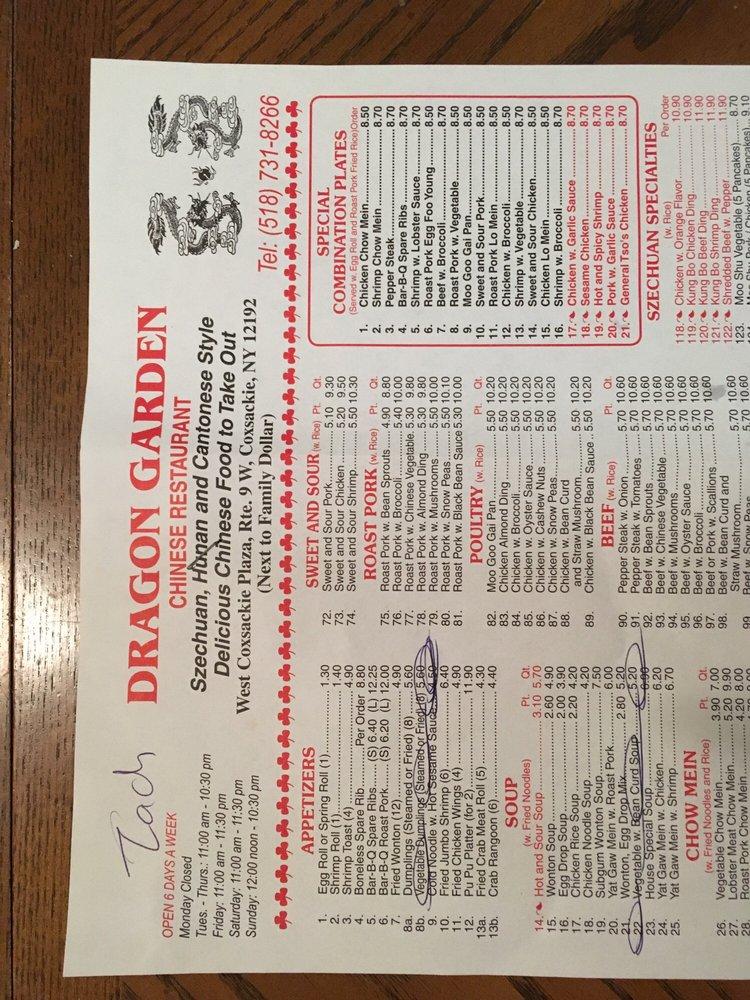 Zach
OPEN 6 DAYS A WEEK
Monday Closed
Tues. - Thurs.: 11:00 am - 10:30 pm
Friday: 11:00 am - 11:30 pm
Saturday: 11:00 am - 11:30 pm
Sunday: 12:00 noon - 10:30 pm
DRAGON GARDEN
CHINESE RESTAURANT
Szechuan, Hunan and Cantonese Style
Delicious Chinese Food to Take Out
West Coxsackie Plaza, Rte. 9 W, Coxsackie, NY 12192
(Next to Family Dollar)
Tel: (518) 731-8266
APPETIZERS
1. Egg Roll or Spring Roll (1) 1.30
2. Shrimp Roll (1) 1.40
3. Shrimp Toast (4) 4.90
4. Boneless Spare Rib Per Order 8.80
5. Bar-B-Q Spare Ribs (S) 6.40 (L) 12.25
6. Bar-B-Q Roast Pork (S) 6.20 (L) 12.00
7. Fried Wonton (12) 4.90
8a. Dumplings (Steamed or Fried) (8) 5.60
8b. Vegetable Dumplings (Steamed or Fried) (8) 5.60
9. Cold Noodle w. Hot Sesame Sauce 4.50
10. Fried Jumbo Shrimp (6) 6.40
11. Fried Chicken Wings (4) 4.90
12. Pu Pu Platter (for 2) 11.90
13a. Fried Crab Meat Roll (5) 4.30
13b. Crab Rangoon (6) 4.40
SOUP
(w. Fried Noodles) Pt. Qt.
14. Hot and Sour Soup 3.10 5.70
15. Wonton Soup 2.60 4.90
16. Egg Drop Soup 2.20 3.90
17. Chicken Rice Soup 2.20 4.20
18. Chicken Noodle Soup 4.20
19. Subgum Wonton Soup 7.50
20. Yat Gaw Mein w. Roast Pork 6.00
21. Wonton, Egg Drop Mix 2.80 5.20
22. Vegetable w. Bean Curd Soup 5.20
23. House Special Soup
24. Yat Gaw Mein w. Chicken 6.20
25. Yat Gaw Mein w. Shrimp 6.70
CHOW MEIN
(w. Fried Noodles and Rice) Pt. Qt.
26. Vegetable Chow Mein 3.90 7.00
27. Lobster Meat Chow Mein 5.20 9.90
28. Roast Pork Chow Mein 4.20 8.00
SWEET AND SOUR (w. Rice) Pt. Qt.
72. Sweet and Sour Pork 5.10 9.30
73. Sweet and Sour Chicken 5.20 9.50
74. Sweet and Sour Shrimp 5.50 10.30
ROAST PORK (w. Rice) Pt. Qt.
75. Roast Pork w. Bean Sprouts 4.90 8.80
76. Roast Pork w. Broccoli 5.40 10.00
77. Roast Pork w. Chinese Vegetable 5.30 9.80
78. Roast Pork w. Almond Ding 5.30 9.80
79. Roast Pork w. Mushrooms 5.50 10.00
80. Roast Pork w. Snow Peas 5.50 10.10
81. Roast Pork w. Black Bean Sauce 5.30 10.00
POULTRY (w. Rice) Pt. Qt.
82. Moo Goo Gai Pan 5.50 10.20
83. Chicken Almond Ding 5.50 10.20
84. Chicken w. Broccoli 5.50 10.20
85. Chicken w. Oyster Sauce 5.50 10.20
86. Chicken w. Cashew Nuts 5.50 10.20
87. Chicken w. Snow Peas 5.50 10.20
88. Chicken w. Bean Curd
and Straw Mushroom 5.50 10.20
89. Chicken w. Black Bean Sauce 5.50 10.20
BEEF (w. Rice) Pt. Qt.
90. Pepper Steak w. Onion 5.70 10.60
91. Pepper Steak w. Tomatoes 5.70 10.60
92. Beef w. Bean Sprouts 5.70 10.60
93. Beef w. Chinese Vegetable 5.70 10.60
94. Beef w. Mushrooms 5.70 10.60
95. Beef w. Oyster Sauce 5.70 10.60
96. Beef w. Broccoli 5.70 10.60
97. Beef or Pork w. Scallions 5.70 10.60
98. Beef w. Bean Curd and
Straw Mushroom 5.70 10.60
99. Beef w. Snow Peas
SPECIAL
COMBINATION PLATES
(Served w. Egg Roll and Roast Pork Fried Rice) Order
1. Chicken Chow Mein 8.50
2. Shrimp Chow Mein 8.70
3. Pepper Steak 8.70
4. Bar-B-Q Spare Ribs 8.70
5. Shrimp w. Lobster Sauce 8.70
6. Roast Pork Egg Foo Young 8.50
7. Beef w. Broccoli 8.70
8. Roast Pork w. Vegetable 8.50
9. Moo Goo Gai Pan 8.50
10. Sweet and Sour Pork 8.50
11. Roast Pork Lo Mein 8.50
12. Chicken w. Broccoli 8.50
13. Shrimp w. Vegetable 8.70
14. Sweet and Sour Chicken 8.50
15. Chicken Lo Mein 8.50
16. Shrimp w. Broccoli 8.70
17. Chicken w. Garlic Sauce 8.70
18. Sesame Chicken 8.70
19. Hot and Spicy Shrimp 8.70
20. Pork w. Garlic Sauce 8.70
21. General Tso's Chicken 8.70
SZECHUAN SPECIALTIES
(w. Rice) Per Order
118. Chicken w. Orange Flavor 10.90
119. Kung Bo Chicken Ding 10.90
120. Kung Bo Beef Ding 11.90
121. Kung Bo Shrimp Ding 11.90
122. Shredded Beef w. Pepper 11.90
123. Moo Shu Vegetable (5 Pancakes) 8.70